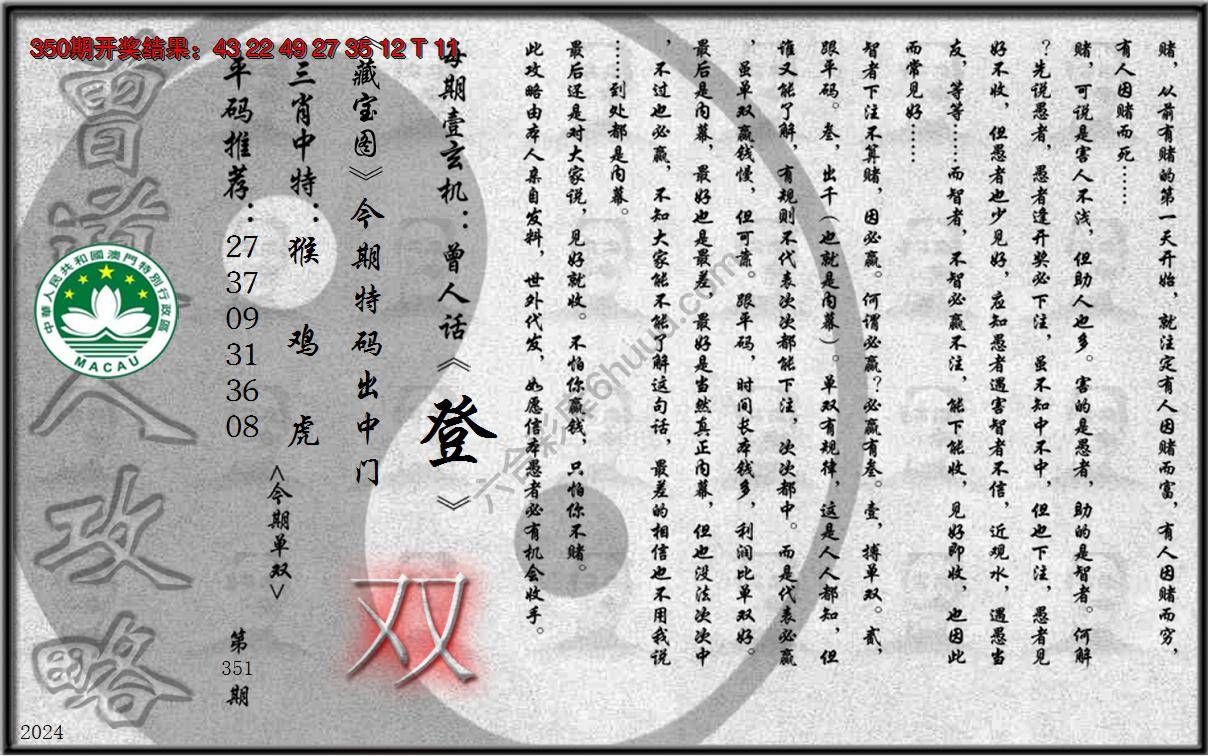 350期开奖结果：43 22 49 27 35 12 T 11
赌，从前有赌的第一天开始，就注定有人因赌而富，有人因赌而穷，
有人因赌而死……
赌，可说是害人不浅，但助人也多。害的是愚者，助的是智者。何解
？先说愚者，愚者逢开奖必下注，虽不知中不中，但也下注，愚者见
好不收，但愚者也少见好，应知愚者遇害智者不信，近观水，遇愚当
友，等等……而智者，不智必赢不注，能下能收，见好即收，也因此
而常见好……
智者下注不算赌，因必赢。何谓必赢？必赢有叁。壹，搏单双。贰，
跟平码。叁，出千（也就是内幕）。单双有规律，这是人人都知，但
谁又能了解，有规则不代表次次都能下注，次次都中。而是代表必赢
，虽单双赢钱慢，但可靠。跟平码，时间长本钱多，利润比单双好。
最后是内幕，最好也是最差，最好是当然真正内幕，但也没法次次中
，不过也必赢，不知大家能不能了解这句话，最差的相信也不用我说
……到处都是内幕。
最后还是对大家说，见好就收。不怕你赢钱，只怕你不赌。
此攻略由本人亲自发料，世外代发，如愿信本愚者必有机会收手。
每期壹玄机：曾人话《登》
《藏宝图》今期特码出中门
双
三肖中特：猴 鸡 虎
<今期单双>
平码推荐：27 37 09 31 36 08
第351期
曾道人攻略
中華人民共和國澳門特別行政區
MACAU
六合彩库6huu.com
2024